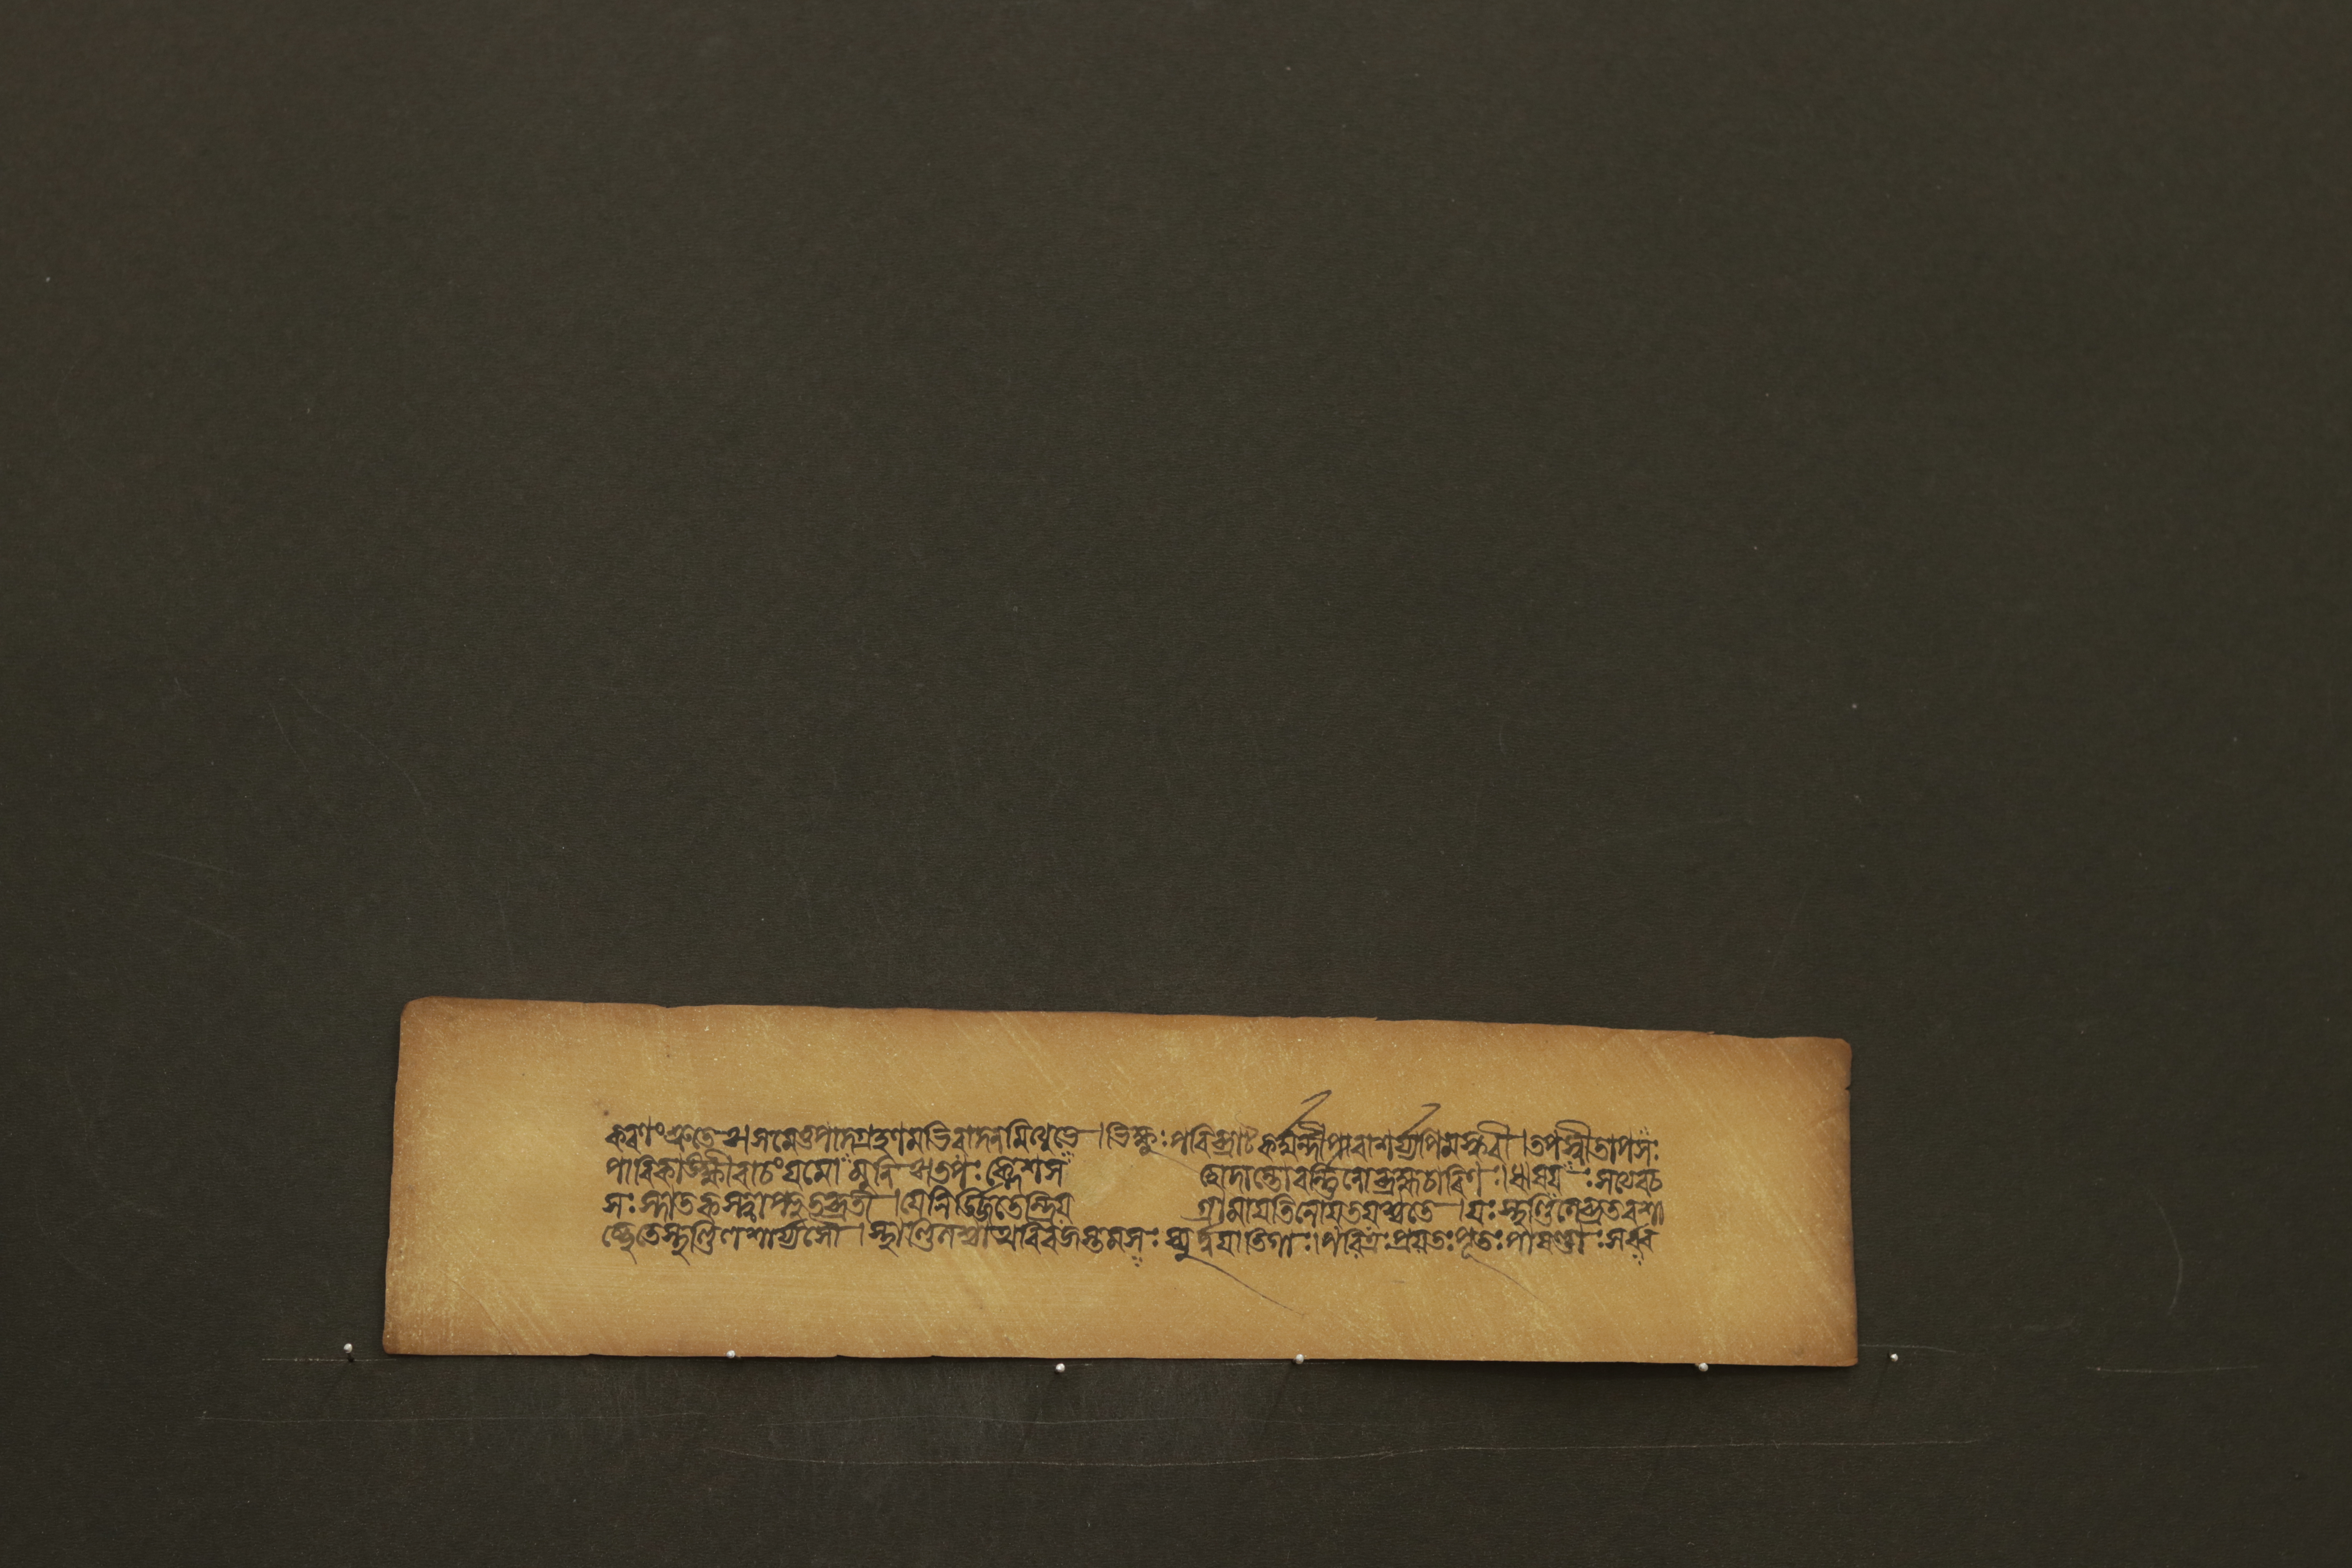 করণং শ্রুতেঃ।সমেতুপাদগ্রহণমভিবাদনমিত্যুভে।ভিক্ষুঃপরিব্রাট্কর্ম্মন্দীপারাশর্য্যপিমস্করী।তপস্বীতাপসঃ
পারিকাঙ্ক্ষীবাচংযমোমুনিঃ।তপঃক্লেশসহোদান্তোবর্ন্নিনোব্রহ্মচারিণঃ।ঋষযঃসত্যবচ
সঃস্নাতকস্ত্বাপ্লুতব্রতী।যেনির্জ্জিতেন্দ্রিয়গ্রামাযতিনোযতযশ্চতে।যঃস্থণ্ডিলেব্রতবশা
চ্ছেতেস্থণ্ডিলশায্যসৌ।স্থাণ্ডিলশ্চাথবিরজস্তমসঃস্যুর্দ্বযাতিগাঃ।পবিত্রঃপ্রযতঃপূতঃপাষণ্ডাঃসর্ব্ব